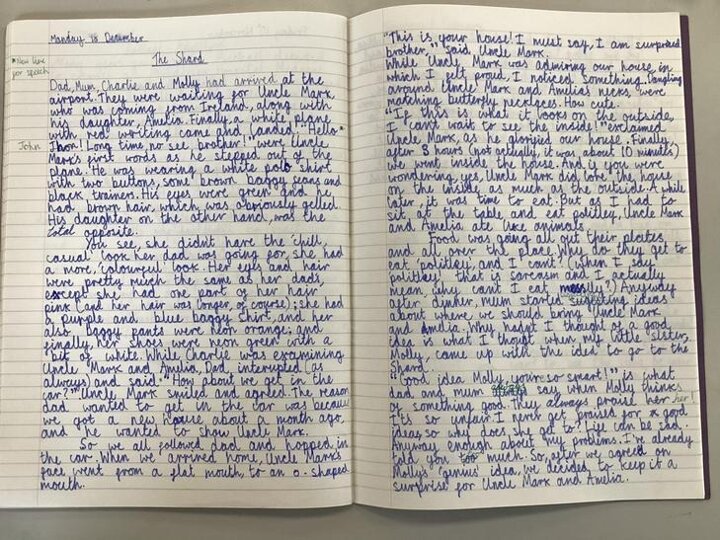 Monday 18 December
The Shard
*New line
for speech
Dad, Mum, Charlie and Molly had arrived at the
airport. They were waiting for Uncle Mark,
who was coming from Ireland, along with
his daughter, Amelia. Finally, a white plane
with red writing came and landed. "Hello*
John
Jhon! Long time, no see, brother!" were Uncle
Mark's first words as he stepped out of the
plane. He was wearing a white polo shirt
with two buttons, some brown baggy jeans and
black trainers. His eyes were green and he
had brown hair, which was obviously gelled.
His daughter on the other hand, was the
total opposite.
You see, she didn't have the 'chill,
casual' look her dad was going for, she had
a more, 'colourful' look. Her eyes and hair
were pretty much the same as her dads,
except she had one part of her hair
pink (and her hair was longer, of course); she had
a purple and blue baggy shirt, and her
also baggy pants were neon orange; and
finally, her shoes were neon green with a
bit of white. While Charlie was examining
Uncle Mark and Amelia, Dad interrupted (as
always) and said: "How about we get in the
car?" Uncle Mark smiled and agreed. The reason
dad wanted to get in the car was because
we got a new house about a month ago,
and he wanted to show Uncle Mark.
So we all followed dad and hopped in
the car. When we arrived home, Uncle Mark's
face went from a flat mouth, to an o-shaped
mouth.
"This is your house! I must say, I am surprised
brother," said Uncle Mark.
While Uncle Mark was admiring our house, in
which I felt proud, I noticed something. Dangling
around Uncle Mark and Amelia's necks, were
matching butterfly neckleces. How cute.
"If this is what it looks on the outside,
I can't wait to see the inside!" exclaimed
Uncle Mark, as he glorified our house. Finally,
after 8 hours (not actually, it was about 10 minutes)
we went inside the house. And if you were
wondering, yes, Uncle Mark did love the house
on the inside as much as the outside. A while
later, it was time to eat. But as I had to
sit at the table and eat politley, Uncle Mark
and Amelia ate like animals.
Food was going all out their plates
and all over the place. Why do they get to
eat 'politley' and I can't? (When I say
'politley' that is sarcasm and I actually
mean, why can't I eat messily?) Anyway
after dinner, mum started sugesting ideas
about where we should bring Uncle Mark
and Amelia. Why hadn't I thought of a good
idea is what I thought when my little sister,
Molly, came up with the idea to go to the
Shard.
"Good idea Molly, your so smart!" is what
dad and mum say when Molly thinks
of something good. They always praise her!
It's so unfair. I never get praised for a good
ideas, so why does she get to? Life can be sad.
Anyway, enough about my problems. I've already
told you too much. So, after we agreed on
Molly's 'genius' idea, we decided to keep it a
surprise for Uncle Mark and Amelia.